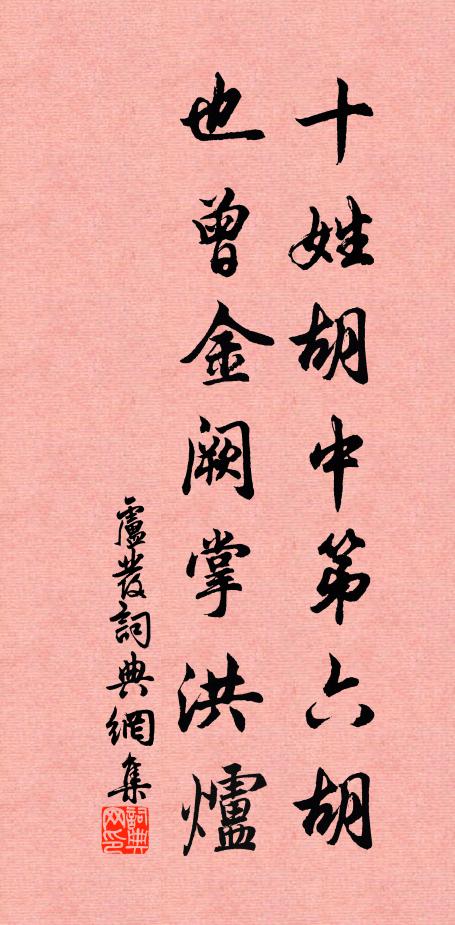 十姓胡中第六胡
也曾金阙掌洪爐
盧發詞典網集
詞典网印